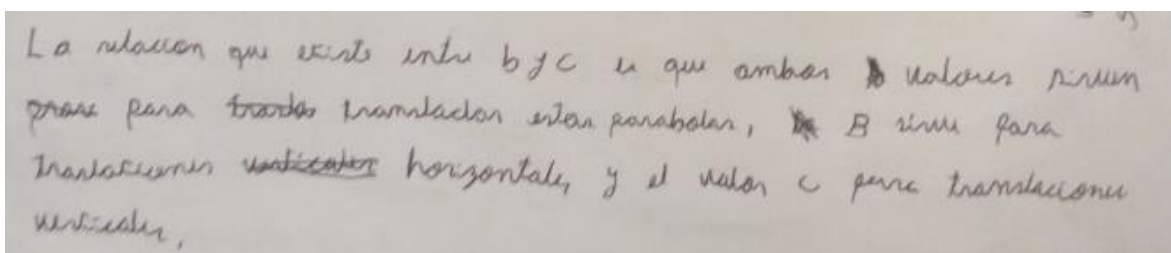 La relacion que existe entre b y c es que ambos valores sirven
para transladar estas parabolas, B sirve para
traslaciones horizontales, y el valor c para translaciones
verticales,